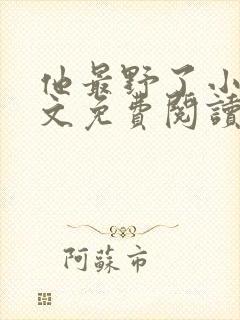 他最野了小
文免費閱讀
阿蘇市